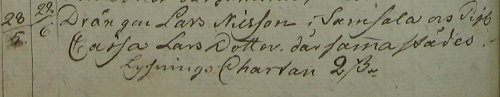 28/5 22/6 Drängen Lars Nilsson i Samsala och Pig
Cajsa Lars Dotter därsamastädes.
Lysnings Chartan 2 ß